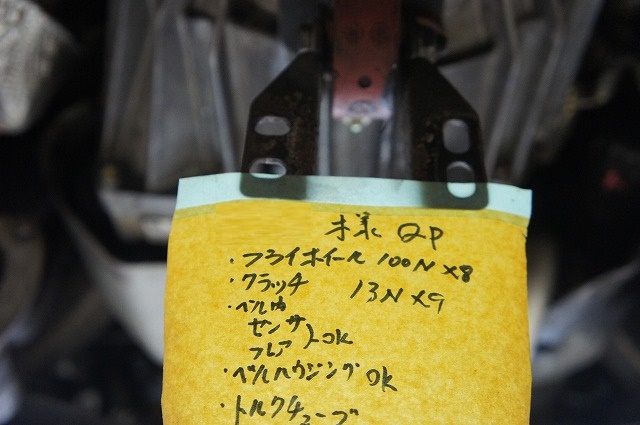 様 QP
・フライホイール 100N×8
・クラッチ 13N×9
・ベル内
センサ
フレア OK
・ベルハウジング OK
・トルクチューブ